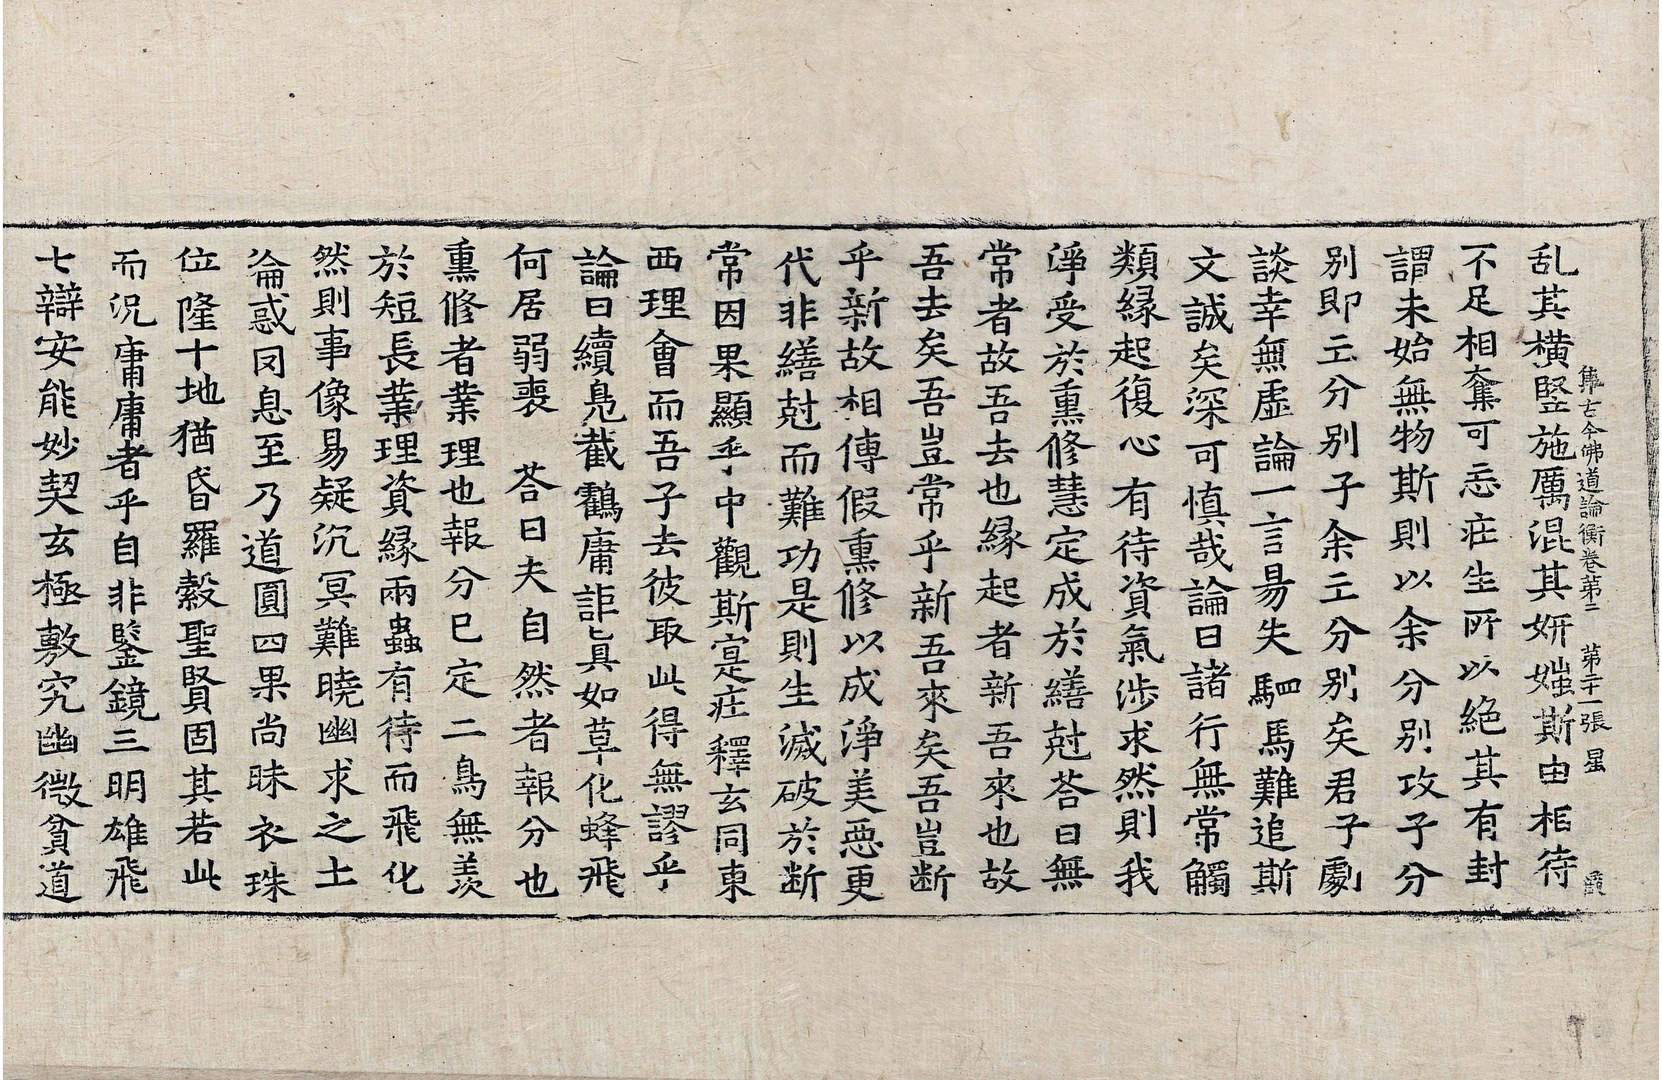 集古今佛道論衡卷第二 第二十一張 星
乱其橫竪施厲混其妍媸斯由相待
不足相奪可忘庄生所以絶其有封
謂未始無物斯則以余分別攻子分
別即亡分別子余亡分別矣君子劇
談幸無虛論一言易失駟馬難追斯
文誠矣深可愼哉論曰諸行無常觸
類緣起復心有待資氣涉求然則我
淨受於熏修慧定成於繕剋荅曰無
常者故吾去也緣起者新吾來也故
吾去矣吾豈常乎新吾來矣吾豈断
乎新故相傳假熏修以成淨美惡更
代非繕剋而難功是則生滅破於断
常因果顯乎中觀斯寔庄釋玄同東
西理會而吾子去彼取此得無謬乎
論曰續鳧截鶴庸詎眞如草化蜂飛
何居弱喪 荅曰夫自然者報分也
熏修者業理也報分已定二鳥無羨
於短長業理資緣兩蟲有待而飛化
然則事像易疑沉冥難曉幽求之士
淪惑罔息至乃道圓四果尚昧衣珠
位隆十地猶昏羅縠聖賢固其若此
而況庸庸者乎自非鑒鏡三明雄飛
七辯安能妙契玄極敷究幽微貧道